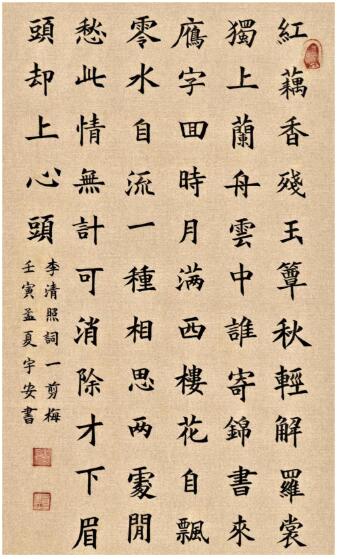 紅藕香殘玉簟秋輕解羅裳
獨上蘭舟雲中誰寄錦書來
鴈字囬時月满西樓花自飄
零水自流一種相思两處閒
愁此情無計可消除才下眉
頭却上心頭
李清照詞一剪梅
壬寅孟夏宇安書